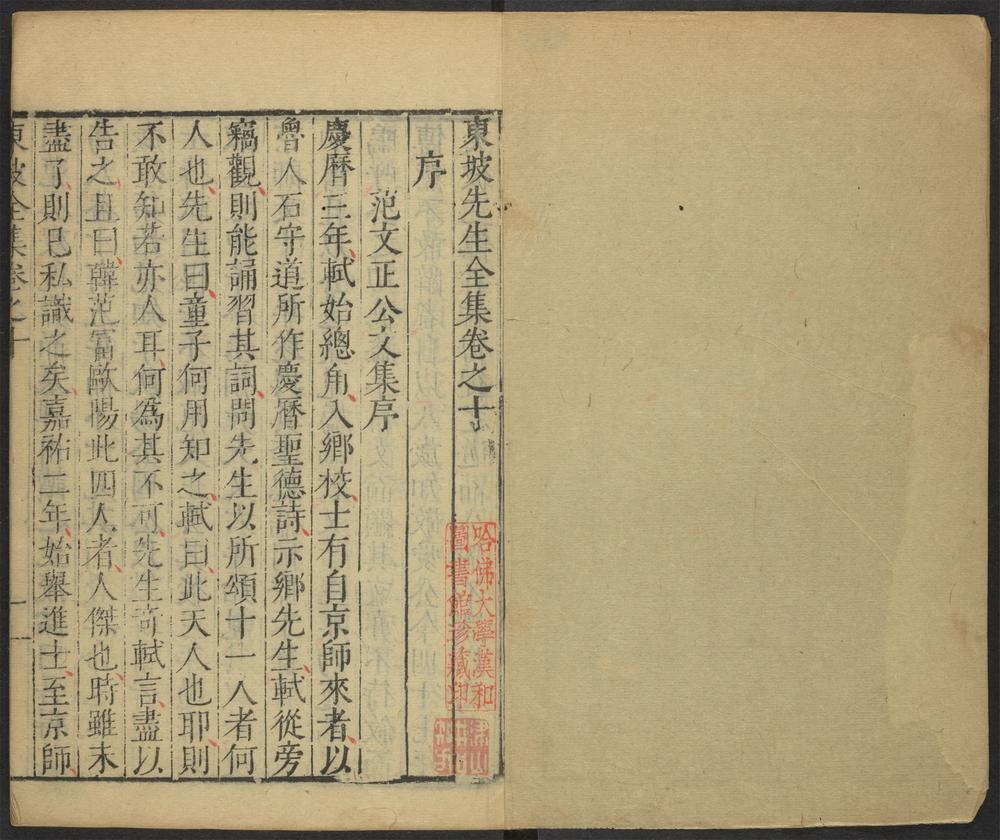 東坡先生全集卷之十
序
范文正公文集序
慶曆三年軾始總角入鄉校士有自京師來者以
魯人石守道所作慶曆聖德詩示鄉先生軾從旁
竊觀則能誦習其詞問先生以所頌十一人者何
人也先生曰童子何用知之軾曰此天人也耶則
不敢知若亦人耳何為其不可先生奇軾言盡以
告之且曰韓范富歐陽此四人者人傑也時雖未
盡了則已私識之矣嘉祐二年始舉進士至京師
東坡全集卷之十 一
哈佛大學漢和
圖書館珍藏印